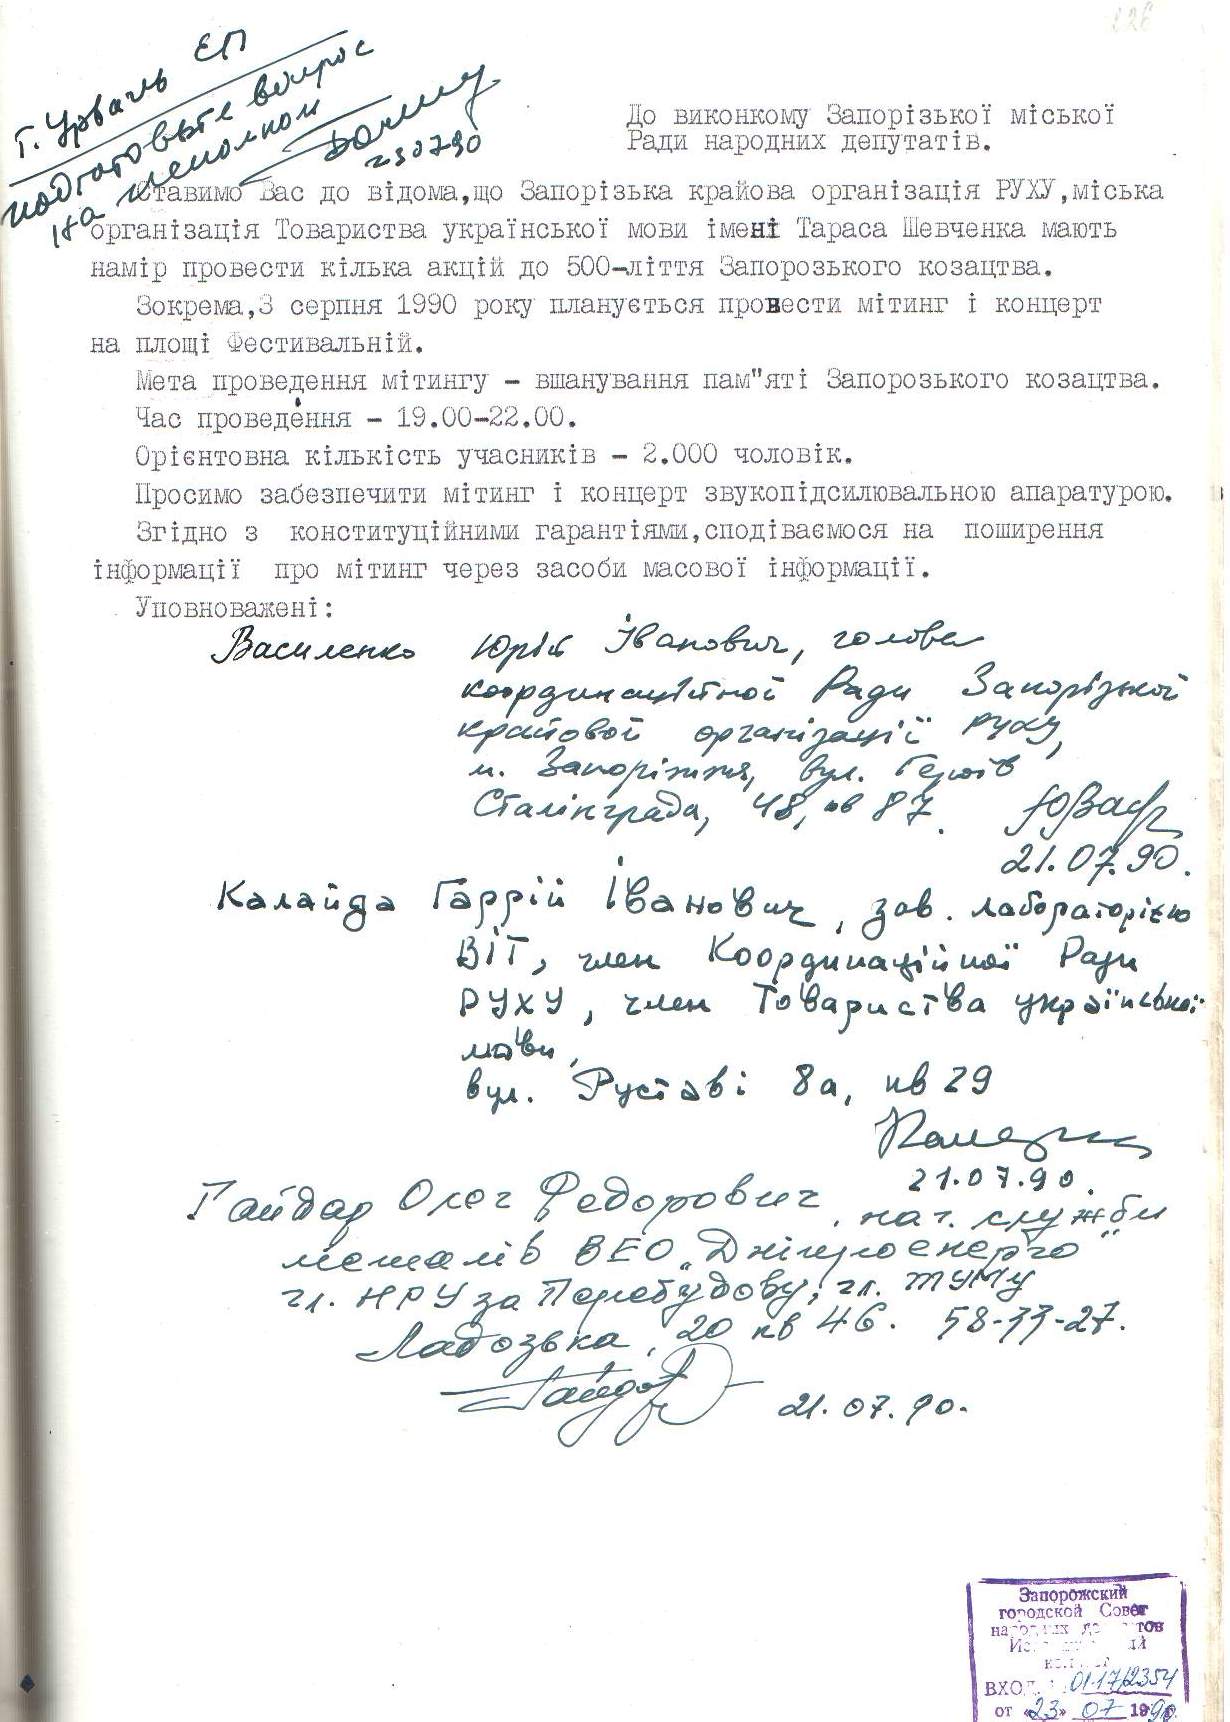 226
т. Урваль ЕП
подготовьте вопрос
на исполком
230790
До виконкому Запорізької міської
Ради народних депутатів.
Ставимо Вас до відома,що Запорізька крайова організація РУХУ,міська
організація Товариства української мови імені Тараса Шевченка мають
намір провести кілька акцій до 500-ліття Запорозького козацтва.
Зокрема,3 серпня 1990 року планується провести мітинг і концерт
на площі Фестивальній.
Мета проведення мітингу - вшанування пам"яті Запорозького козацтва.
Час проведення - 19.00-22.00.
Орієнтовна кількість учасників - 2.000 чоловік.
Просимо забезпечити мітинг і концерт звукопідсилювальною апаратурою.
Згідно з конституційними гарантіями,сподіваємося на поширення
інформації про мітинг через засоби масової інформації.
Уповноважені:
Василенко Юрій Іванович, голова
координаційної Ради Запорізької
крайової організації РУХУ,
м. Запоріжжя, вул. Героїв
Сталінграда, 48, кв 87.
21.07.90.
Калайда Гаррій Іванович, зав. лабораторією
ВІТ, член Координаційної Ради
РУХУ, член Товариства української
мови,
вул. Руставі 8а, кв 29
21.07.90.
Гайдар Олег Федорович, нач. служби
ВЕО "Дніпроенерго"
чл. НРУ за Перебудову, чл. ТУМу
Ладозька, 20 кв 46. 58-33-27.
21.07.90.
Запорожский
городской Совет
народных депутатов
Исполнительный
комитет
ВХОД. 01-17/2354
от «23» 07 1990г.